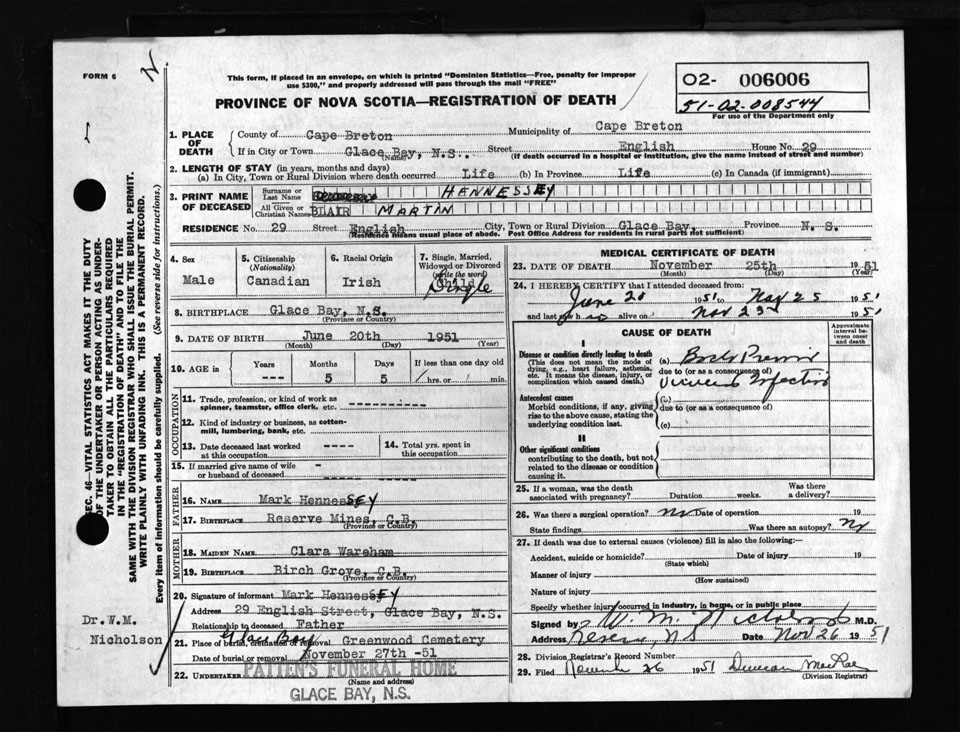 FORM 6
This form, if placed in an envelope, on which is printed "Dominion Statistics—Free, penalty for improper
use $300," and properly addressed will pass through the mail "FREE"
PROVINCE OF NOVA SCOTIA—REGISTRATION OF DEATH
02- 006006
51-02-008544
For use of the Department only
1. PLACE OF DEATH
County of Cape Breton Municipality of Cape Breton
If in City or Town Glace Bay, N.S. Street English House No. 29
(Name) (If death occurred in a hospital or institution, give the name instead of street and number)
2. LENGTH OF STAY (in years, months and days)
(a) In City, Town or Rural Division where death occurred Life (b) In Province Life (c) In Canada (if immigrant)
3. PRINT NAME OF DECEASED
Surname or Last Name HENNESSEY
All Given or Christian Names BLAIR MARTIN
RESIDENCE No. 29 Street English City, Town or Rural Division Glace Bay, Province N. S.
(Residence means usual place of abode. Post Office Address for residents in rural parts not sufficient)
4. Sex Male
5. Citizenship (Nationality) Canadian
6. Racial Origin Irish
7. Single, Married, Widowed or Divorced (write the word) Child Single
8. BIRTHPLACE Glace Bay, N.S.
(Province or Country)
9. DATE OF BIRTH June 20th 1951
(Month) (Day) (Year)
10. AGE in Years --- Months 5 Days 5 If less than one day old / hrs. or / min.
OCCUPATION
11. Trade, profession, or kind of work as
spinner, teamster, office clerk, etc.
12. Kind of industry or business, as cotton-
mill, lumbering, bank, etc.
13. Date deceased last worked
at this occupation ----
14. Total yrs. spent in
this occupation
15. If married give name of wife
or husband of deceased -
FATHER
16. NAME Mark HennesSEY
17. BIRTHPLACE Reserve Mines, C.B.
(Province or Country)
MOTHER
18. MAIDEN NAME Clara Wareham
19. BIRTHPLACE Birch Grove, C.B.
(Province or Country)
20. Signature of informant Mark HennesSEY
Address 29 English Street, Glace Bay, N.S.
Relationship to deceased Father
21. Place of burial, cremation or removal Glace Bay Greenwood Cemetery
Date of burial or removal November 27th -51
22. UNDERTAKER PATTEN'S FUNERAL HOME
(Name and address)
GLACE BAY, N.S.
MEDICAL CERTIFICATE OF DEATH
23. DATE OF DEATH November 25th 1951
(Month) (Day) (Year)
24. I HEREBY CERTIFY that I attended deceased from:
June 20 1951 to Nov 25 1951
and last saw h im alive on Nov 23 1951
CAUSE OF DEATH
Approximate interval between onset and death
I
Disease or condition directly leading to death
(This does not mean the mode of
dying, e.g., heart failure, asthenia,
etc. It means the disease, injury, or
complication which caused death.)
(a)
due to (or as a consequence of)
Infection
Antecedent causes
Morbid conditions, if any, giving
rise to the above cause, stating the
underlying condition last.
(b)
due to (or as a consequence of)
(c)
II
Other significant conditions
contributing to the death, but not
related to the disease or condition
causing it.
25. If a woman, was the death
associated with pregnancy? Duration weeks. Was there a delivery?
26. Was there a surgical operation? No Date of operation 19
State findings Was there an autopsy? No
27. If death was due to external causes (violence) fill in also the following:—
Accident, suicide or homicide? Date of injury 19
(State which)
Manner of injury
(How sustained)
Nature of injury
Specify whether injury occurred in industry, in home, or in public place
Signed by W. M. Nicholson M.D.
Address Reserve, NS Date Nov 26 1951
28. Division Registrar's Record Number
29. Filed November 26 1951 Duncan MacRae
(Division Registrar)
SEC. 46—VITAL STATISTICS ACT MAKES IT THE DUTY
OF THE UNDERTAKER OR PERSON ACTING AS UNDER-
TAKER TO OBTAIN ALL THE PARTICULARS REQUIRED
IN THE "REGISTRATION OF DEATH" AND TO FILE THE
SAME WITH THE DIVISION REGISTRAR WHO SHALL ISSUE THE BURIAL PERMIT.
WRITE PLAINLY WITH UNFADING INK. THIS IS A PERMANENT RECORD.
Every item of information should be carefully supplied. (See reverse side for instructions.)
Dr. W.M.
Nicholson